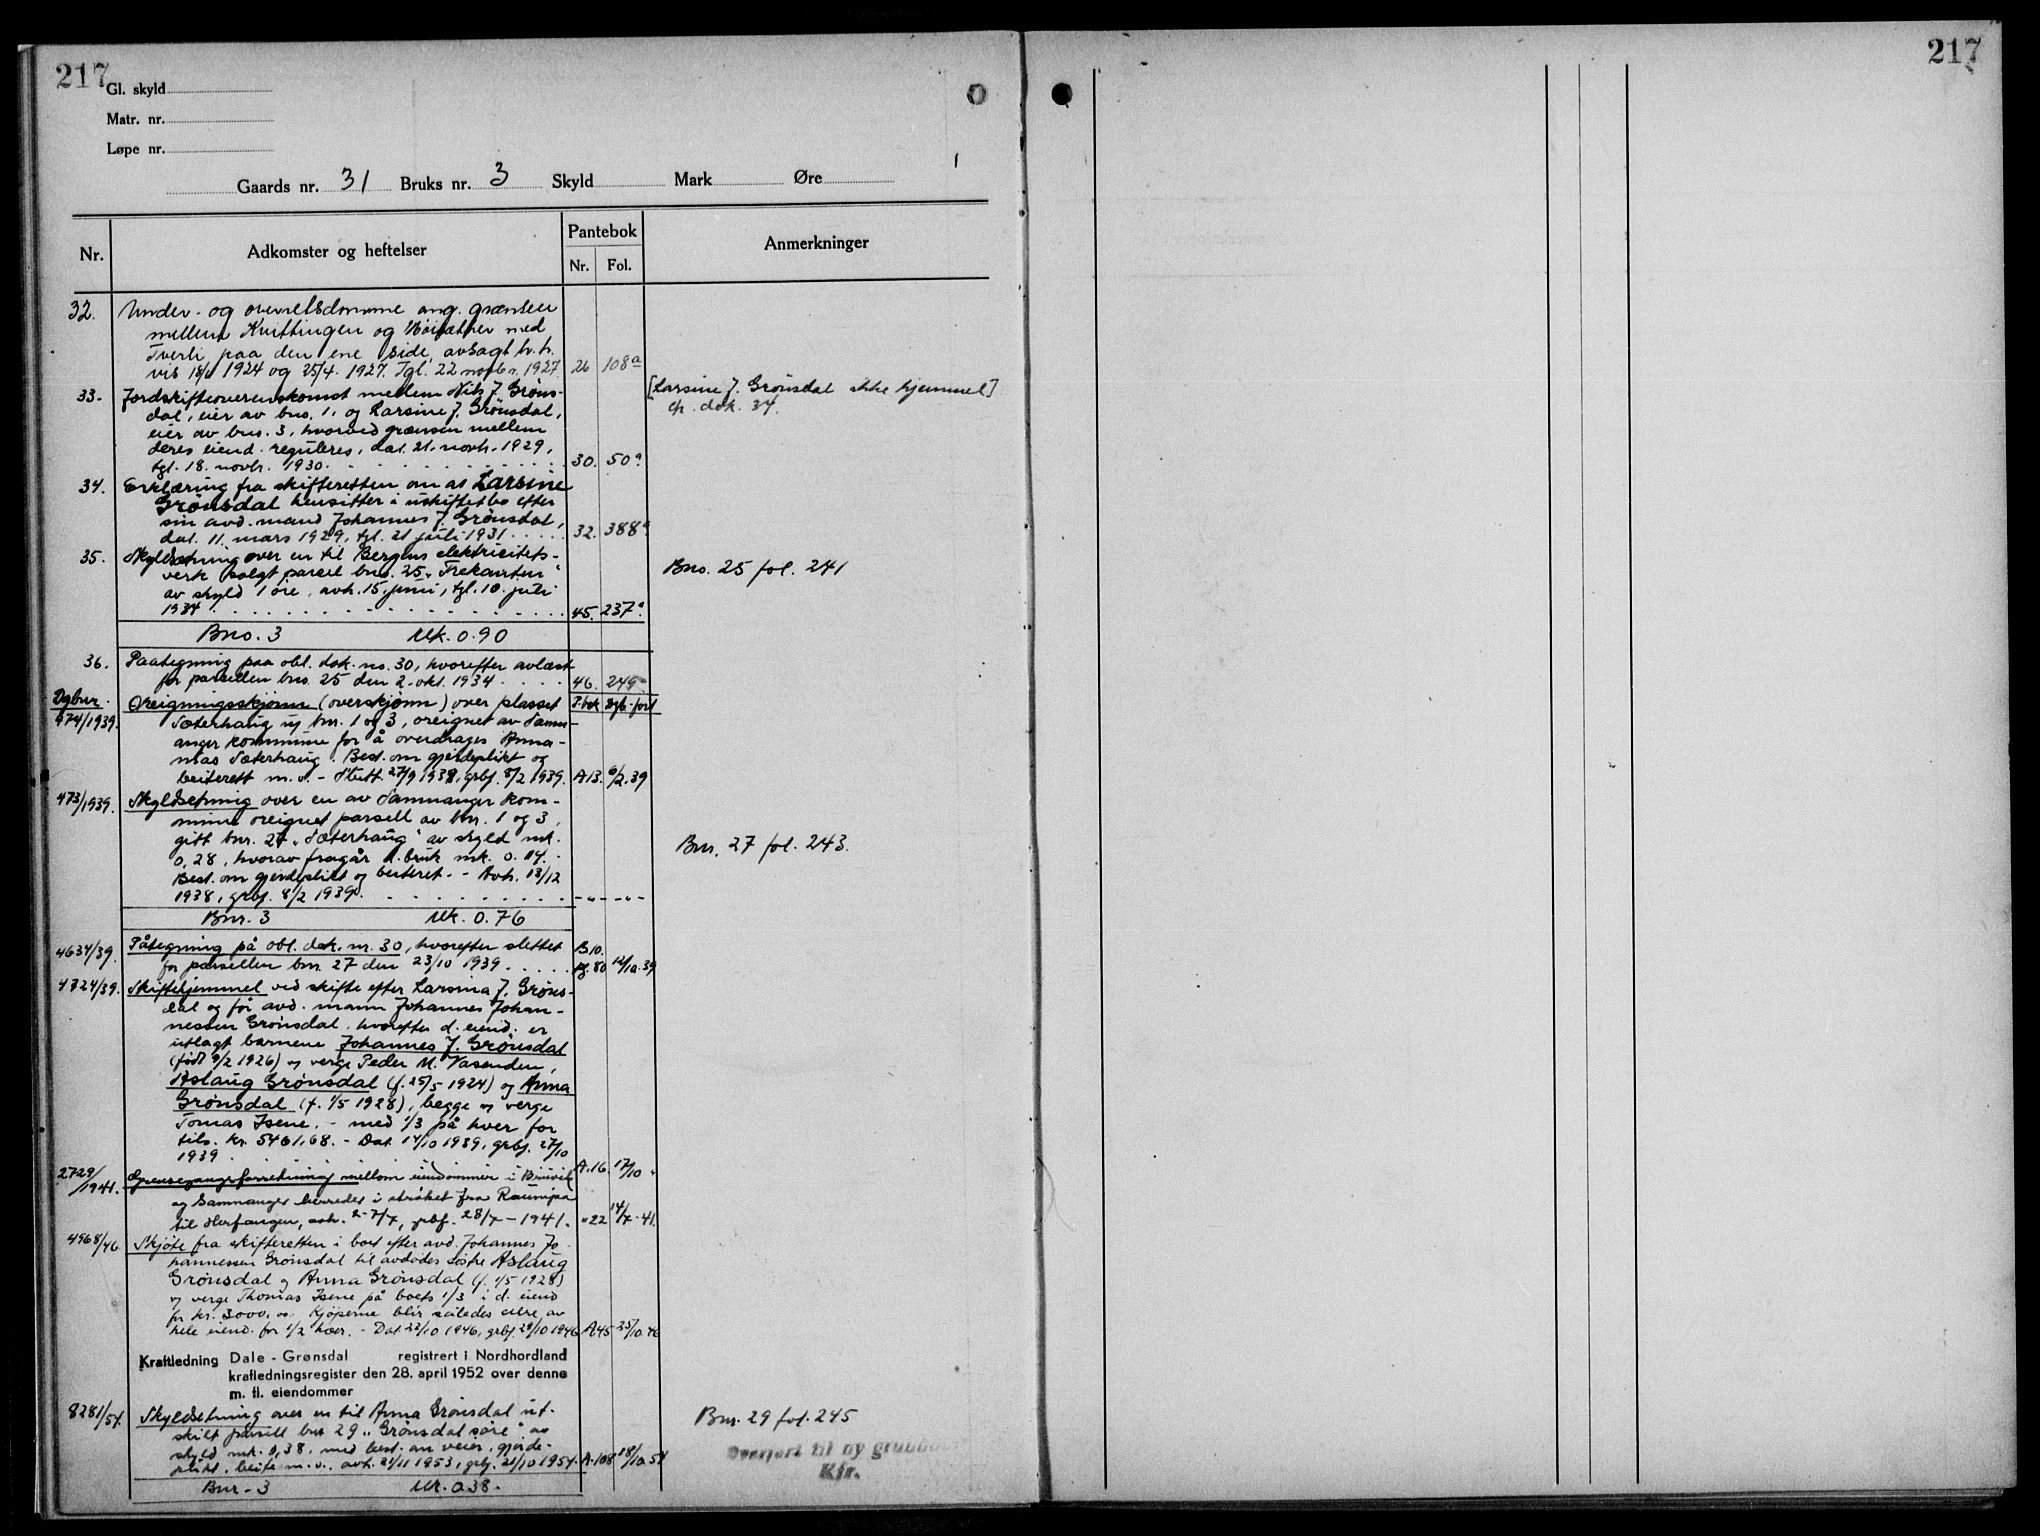 217
217
Gl. skyld
Matr. nr.
Løpe nr.
Gaards nr. 31 Bruks nr. 3 Skyld Mark Øre
Nr. Adkomster og heftelser Pantebok Anmerkninger
Nr. Fol.
32. Under- og overretsdomme ang. grænsen
mellem Kvittingen og med
Tverli paa den ene side, avsagt h.h.
vis 18/6 1924 og 25/4 1927. Tgl. 22 novbr. 1927. 26 108a
33. Jordskifteoverenskomst mellem Nils J. Grøns-
dal, eier av bno. 1, og Larsine J. Grønsdal,
eier av bno. 3, hvorved grænsen mellem
deres eiend. reguleres, dat. 21. novh. 1929,
tgl. 18. novbr. 1930. 30. 50a
[Larsine J. Grønsdal ikke hjemmel]
cfr. dok. 34.
34. Erklæring fra skifteretten om at Larsine
Grønsdal hensitter i uskiftet bo efter
sin avd. mand Johannes J. Grønsdal,
dat. 11. mars 1929, tgl. 21 juli 1931. 32. 388a
35. Skyldsetning over en til Bergens elektricitets-
verk solgt parcel bno. 25 "Trekanten"
av skyld 1 øre, avh. 15. juni, tgl. 10. juli
1934 45. 237a
Bno. 25 fol. 241
Bno. 3 Mk. 0.90
36. Paategning paa obl. dok. no. 30, hvorefter avlæst
for parsellen bno. 25 den 2. okt. 1934 46. 249a
Dgbnr. Oreigningsskjønn (overskjønn) over plasset P.bok Dgb-ført
474/1939. Sæterhaug u/ bnr. 1 og 3, oreignet av Samn-
anger kommune for å overdrages Anna-
nias Sæterhaug. Best. om gjerdeplikt og
beiterett m.v. - Slutt. 27/9 1938, grbf. 8/2 1939. A13. 6/2.39
473/1939. Skyldsetning over en av Samnanger kom-
mune oreignet parsell av bnr. 1 og 3,
gitt bnr. 27 "Sæterhaug" av skyld mk.
0,28, hvorav fragår d. bruk mk. 0.14.
Best. om gjerdeplikt og beiteret. - Avh. 13/12
1938, grbf. 8/2 1939. - " - " -
Bnr. 27 fol. 243.
Bnr. 3 Mk. 0.76
4634/39. Påtegning på obl. dok. nr. 30, hvorefter slettet B10.
for parsellen bnr. 27 den 23/10 1939 pg. 80 12/10.39
4724/39. Skiftehjemmel ved skifte efter Larsina J. Grøns-
dal og før avd. mann Johannes Johan-
nessen Grønsdal, hvorefter d. eiend. er
utlagt barnene Johannes J. Grønsdal
(født 9/2 1926) v/ verge Peder M. Vasenden,
Aslaug Grønsdal (f. 25/5 1924) og Anna
Grønsdal (f. 1/5 1928), begge v/ verge
Tomas Isene. - med 1/3 på hver for
tils. kr. 5461,68. - Dat. 14/10 1939, grbf. 27/10
1939 A.16. 17/10 "
2729/1941. Grensegangsforretning mellom eiendommer i Bruvik
og Samnanger herreder i strøket fra
til avh. 2-7/7, grbf. 28/7-1941. "22 14/7-41.
4968/46 Skjøte fra skifteretten i boet efter avd. Johannes Jo-
hannessen Grønsdal til avdødes søstre Aslaug
Grønsdal og Anna Grønsdal (f. 1/5 1928)
v/ verge Thomas Isene på boets 1/3 i d. eiend
for kr. 3000,00. Kjøperne blir således eiere av
hele eiend. for 1/2 hver. - Dat. 22/10 1946, grbf. 29/10 1946. A45 25/10.46
Kraftledning Dale - Grønsdal registrert i Nordhordland
kraftledningsregister den 28. april 1952 over denne
m. fl. eiendommer
8281/54. Skyldsetning over en til Anna Grønsdal ut-
skilt parsell bnr 29 "Grønsdal søre" av
skyld mk. 0,38, med best. om veier, gjerde-
plikt, beite m.v. avh. 21/11 1953, grbf. 21/10 1954. A-108 18/10.54
Bnr. 29 fol. 245
Overført til ny
Kfr.
Bnr. 3 Mk. 0.38.